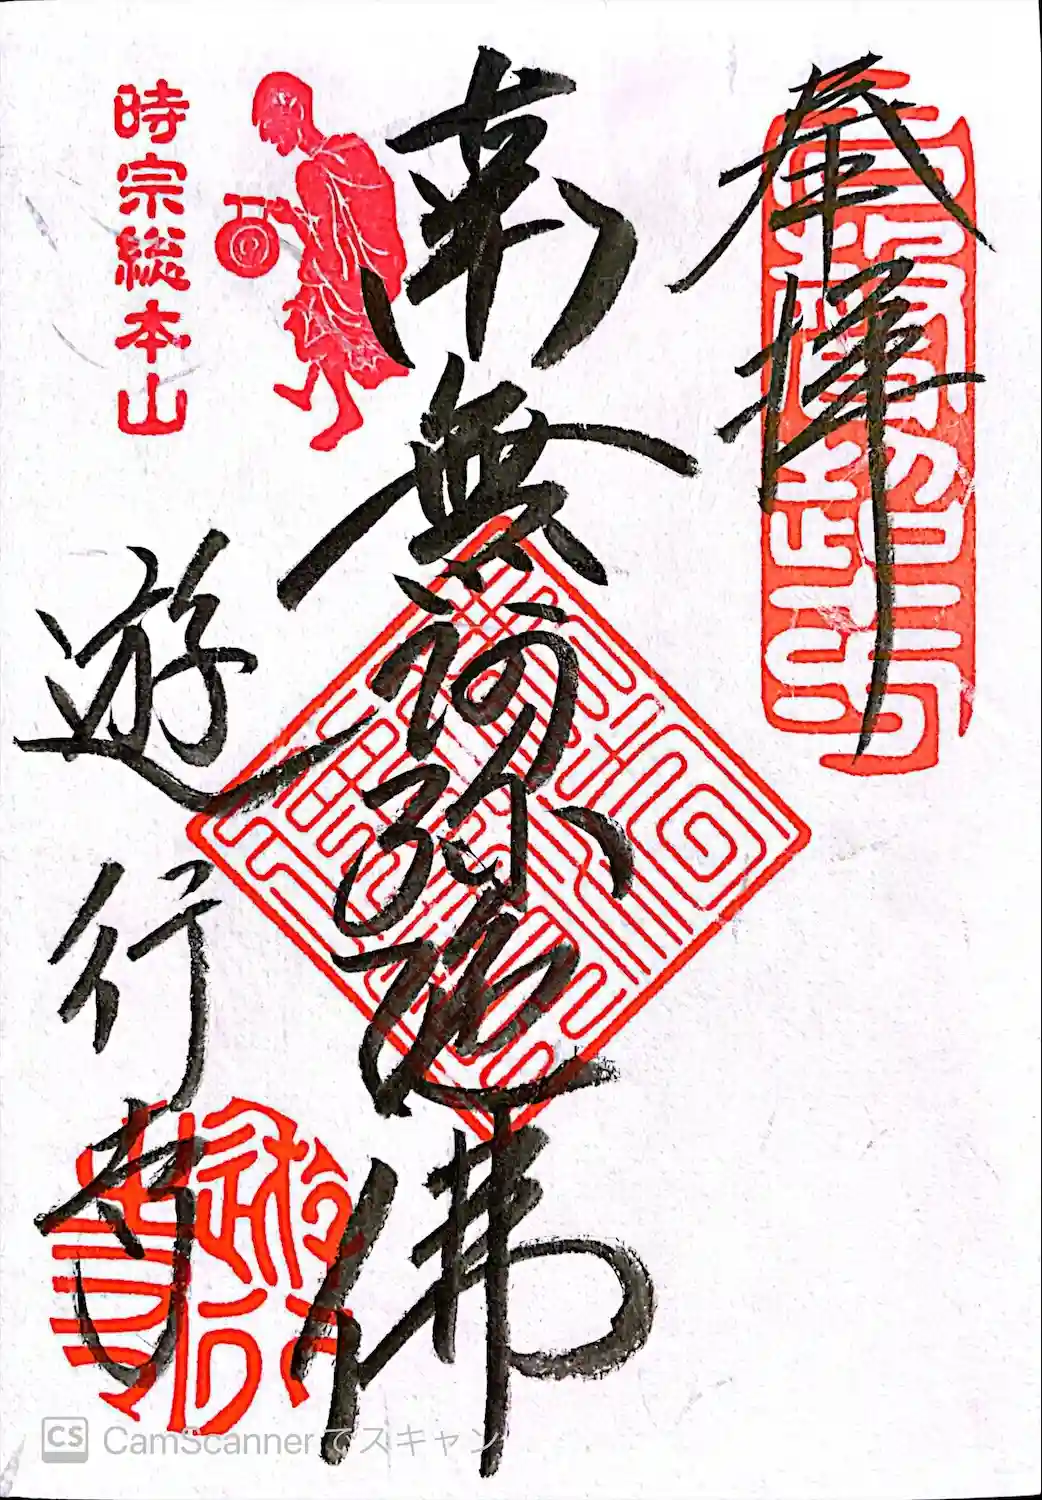 奉拝
南無阿弥陀佛
時宗総本山
遊行寺
CS CamScannerでスキャン